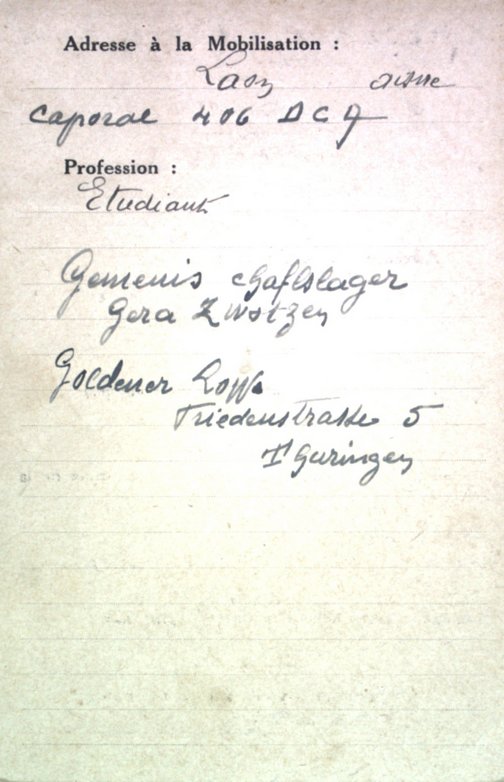 Adresse à la Mobilisation :
Laon aisne
Caporal 406 D C A
Profession :
Etudiant
Gemenis chaftslager
Gera Zwotzen
Goldener
Friedenstrasse 5
Thuringen